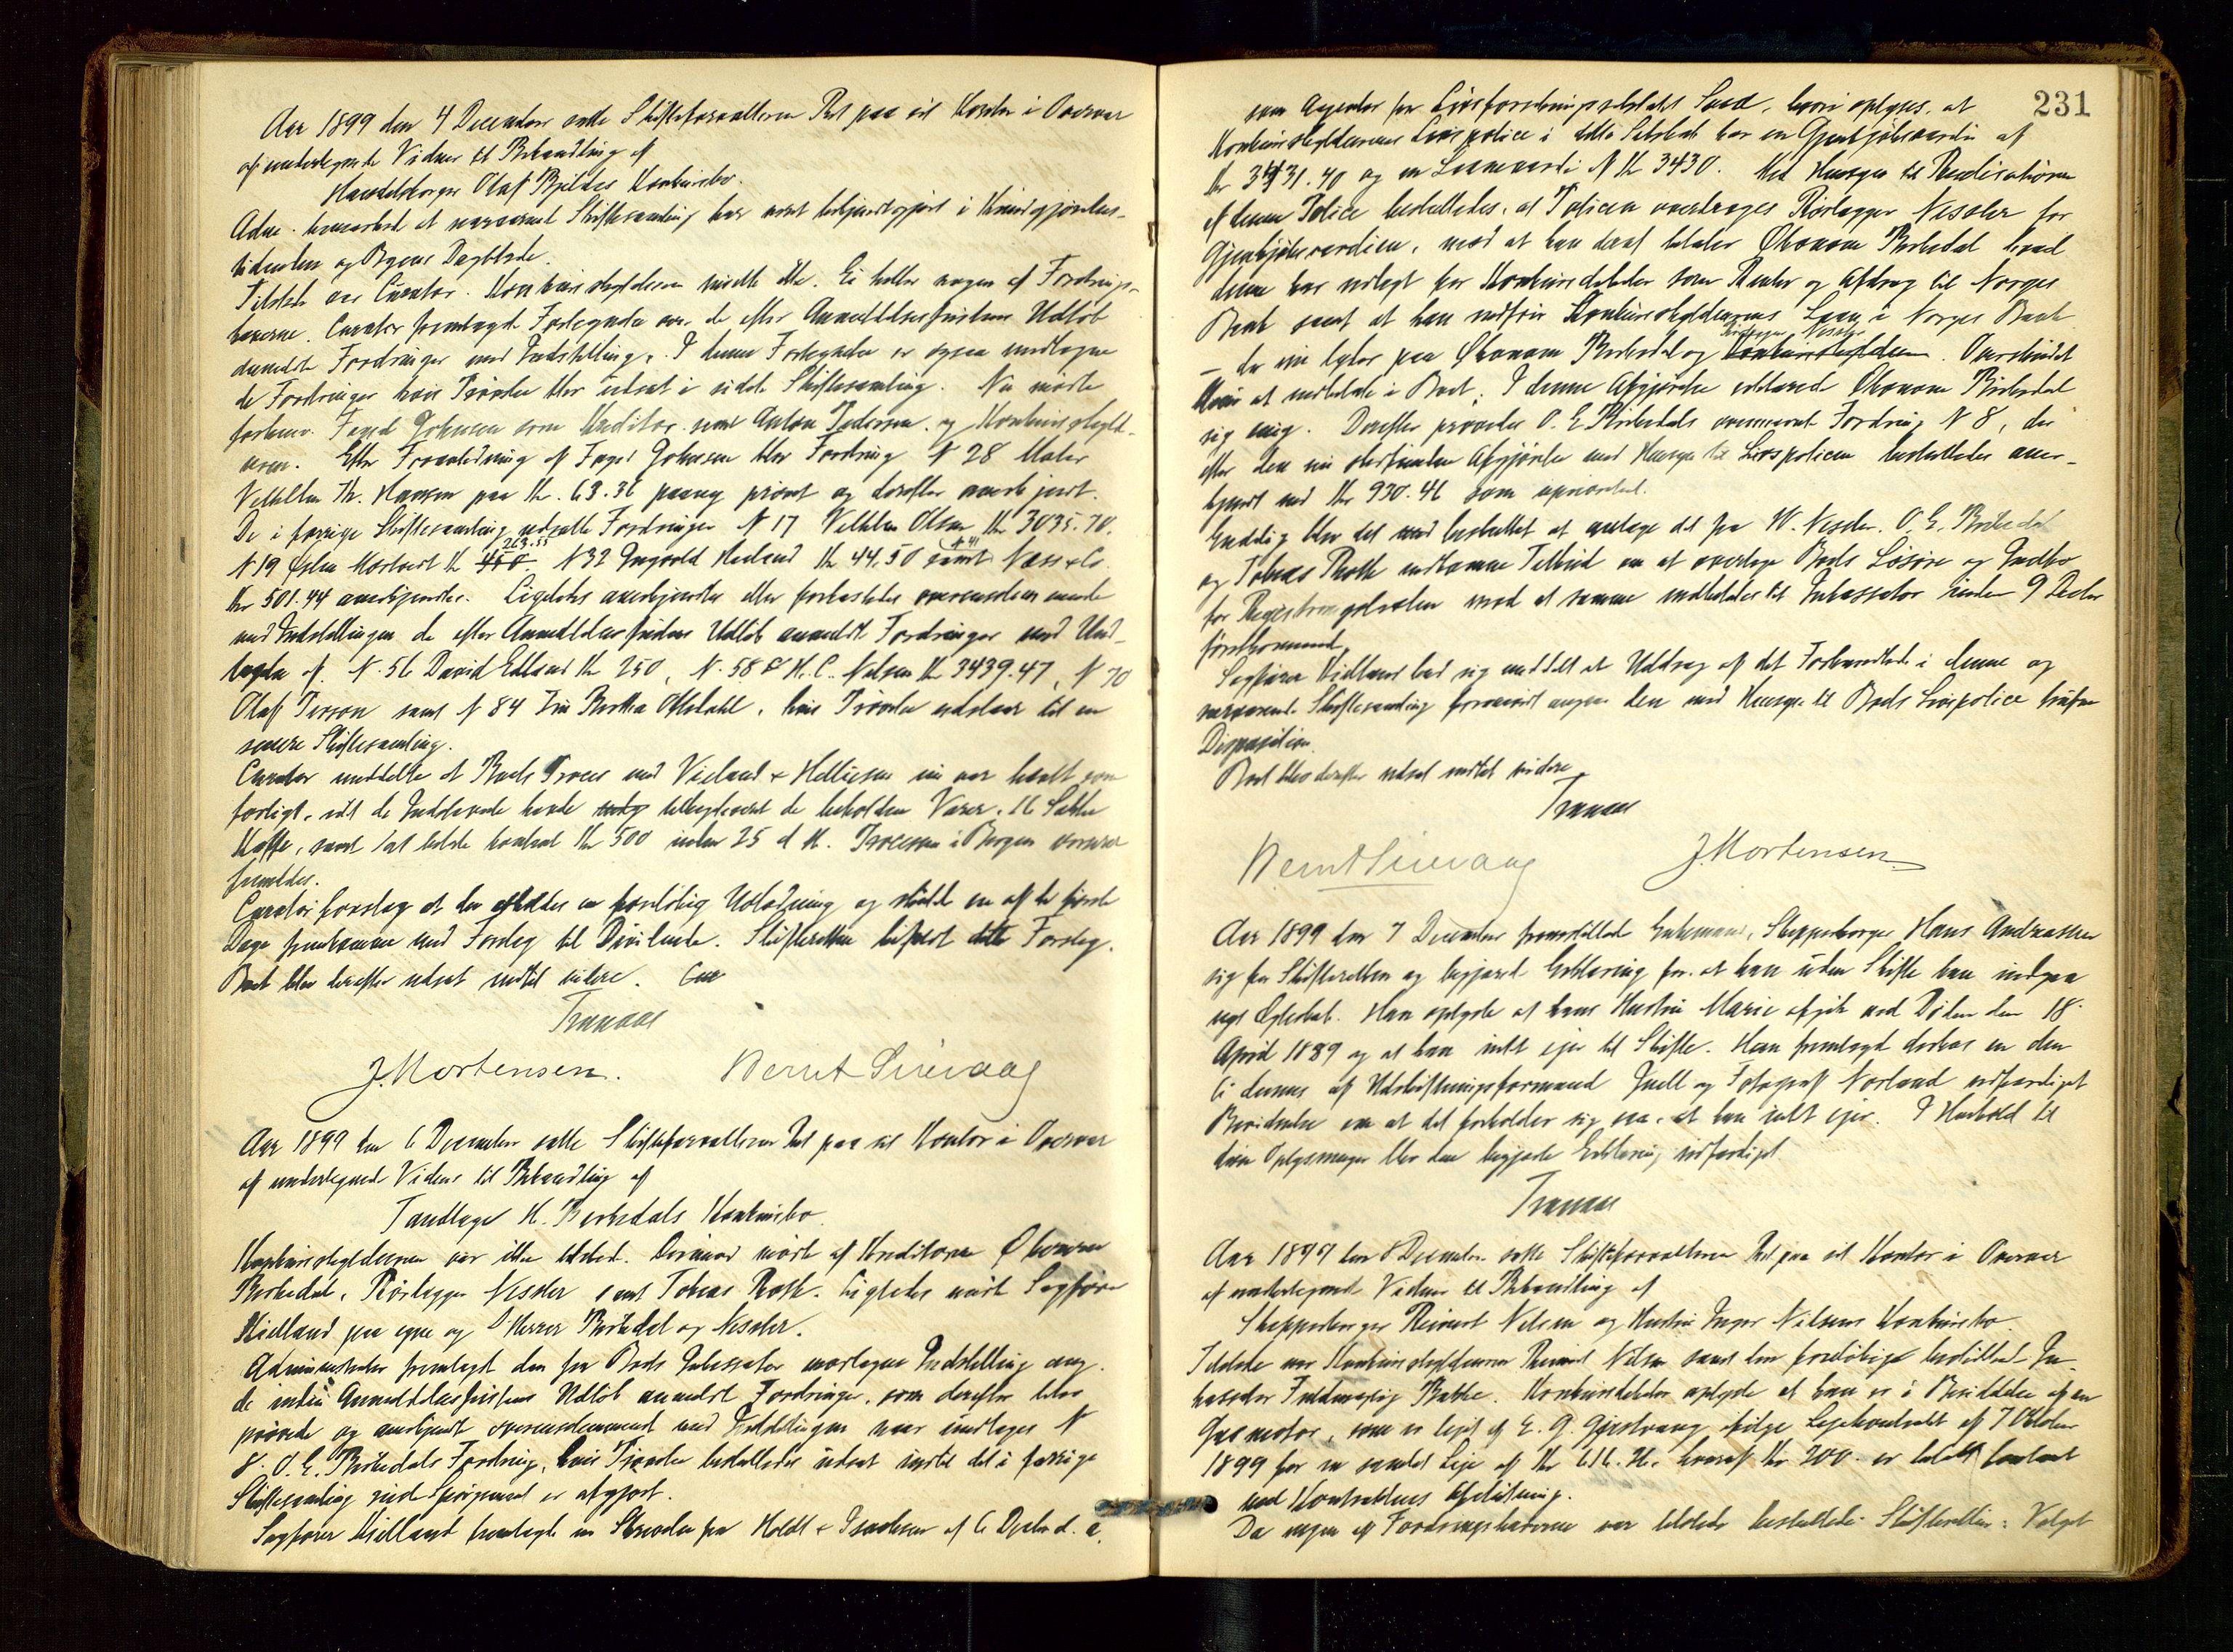 Aar 1899 den 4 December satte Skifteforvalteren Ret paa sit Kontor i Overvær
af undertegnede Vidner til Behandling af
Handelsborger Olaf Kjeldes Konkursbo.
Adm. bemærkede at nærværende Skiftesamling har været bekjendtgjort i Kundgjørelses-
tidenden og Byens Dagblade.
Tilstede var Curator. Konkursskyldneren mødte ikke. Ei heller nogen af Fordrings-
haverne. Curator fremlagde Fortegnelse over de efter Anmeldelsesfristens Udløb
anmeldte Fordringer med Indstilling. I denne Fortegnelse er ogsaa medtagne
de Fordringer hvis Prøvelse blev udsat i sidste Skiftesamling. Nu mødte
forhenv. Foged Johnsen som Kreditor samt Anton Pedersen og Konkursskyld-
neren. Efter Foranledning af Foged Johnsen blev Fordring N 28 Maler
Vilhelm Th. Hansen paa Kr. 63.36 paany prøvet og derefter anerkjendt.
De i forrige Skiftesamling udsatte Fordringer N 17 Vilhelm Olsen Kr 3035.70.
263.55 N 41
N 19 Østen Marhart Kr 450. N 32 Ingvald Meland Kr 44,50 samt Næss & Co.
Kr 501.44 anerkjendtes. Ligeledes anerkjendtes eller forkastedes overensstemmende
med Indstillingen de efter Anmeldelsesfristens Udløb anmeldte Fordringer med Und-
tagelse af N. 56 David Edland Kr 250, N. 58 H. C. Nielsen Kr 3439.47, N 70
Olaf Persson samt N 84 Fru Bertha Oftedahl, hvis Prøvelse udstaar til en
senere Skiftesamling.
Curator meddelte at Boets Proces med Vieland & Helliesen nu var hævet som
forligt, idet de Indstevnte havde tilbageleveret de beholdne Varer, 16 Sække
Kaffe, samt at betale kontant Kr 500 inden 25 d. M. Processen i Bergen
fremdeles.
Curator foreslog at der afholdes en foreløbig Udlodning og vilde en af de første
Dage fremkomme med Forslag til Dividende. Skifteretten bifaldt dette Forslag.
Boet blev derefter udsat indtil videre.
Tranaas
J. Mortensen. Bernt Sirevaag
Aar 1899 den 6 December satte Skifteforvalteren Ret paa sit Kontor i Overvær
af undertegnede Vidner til Behandling af
Tandlæge H. Birkedals Konkursbo
Konkursskyldneren var ikke tilstede. Derimod mødte af Kreditorer Økonom
Birkedal, Rørlægger Nessler samt Tobias Roth. Ligeledes mødte Sagfører
Kielland paa egne og D'Herrer Birkedal og Nessler.
Administrator fremlagde den fra Boets Inkassator modtagne Indstilling ang.
de inden Anmeldelsesfristens Udløb anmeldte Fordringer, som derefter blev
prøvede og anerkjendt overensstemmende med Indstillingen naar undtages N
8. O. E. Birkedals Fordring, hvis Prøvelse besluttedes udsat indtil det i forrige
Skiftesamling rejste Spørgsmaal er afgjort.
Sagfører Kielland fremlagde en Skrivelse fra Holdt & Isachsen af 6 Decbr d. a.
231
som Agenter for Livsforsikringsselskabet Svea, hvori oplyses, at
Konkursskyldnerens Livspolice i dette Selskab har en Gjenkjøbsværdi af
Kr 3431.40 og en Laaneværdi af Kr 3430. Med Hensyn til Realisationen
af denne Police besluttedes, at Policen overdrages Rørlægger Nessler for
Gjenkjøbsværdien, mod at han deraf betaler Økonom Birkedal hvad
denne har udlagt for Konkursdebitor som Renter og Afdrag til Norges
Bank samt at han indfrir Konkursskyldnerens Laan i Norges Bank
Rørlægger Nessler
– der nu lyder paa Økonom Birkedal og Konkursskyldneren. Overskudet
bliver at indbetale i Boet. I denne Afgjørelse erklærede Økonom Birkedal
sig enig. Derefter prøvedes O. E. Birkedals ovennævnte Fordring N 8, der
efter den nu stedfundne Afgjørelse med Hensyn til Livspolicen besluttedes aner-
kjendt med Kr 930.46 som uprioritert.
Endelig blev det med besluttet at antage det fra W. Nessler, O. E. Birkedal
og Tobias Roth indkomne Tilbud om at overtage Boets Løsøre og Indbo
for Registreringstaksten mod at samme indbetales til Inkassator inden 9 Decbr
førstkommende.
Sagfører Kielland bad sig meddelt et Uddrag af det Forhandlede i denne og
nærværende Skiftesamling forsaavidt angaar den med Hensyn til Boets Livspolice trufne
Disposition.
Boet blev derefter udsat indtil videre
Tranaas
Bernt Sirevaag J. Mortensen
Aar 1899 den 7 December fremstillede Enkemand, Skipperborger Hans Andreassen
sig for Skifteretten og begjærede Erklæring for at han uden Skifte kan indgaa
nyt Ægteskab. Han oplyste at hans Hustru Marie afgik ved Døden den 18.
April 1889 og at han intet ejer til Skifte. Han fremlagde derhos en den
6 dennes af Udskiftningsformand Juell og Fotograf Norland udfærdiget
Bevidnelse om at det forholder sig saa, at han intet ejer. I Henhold til
disse Oplysninger blev den begjærede Erklæring udfærdiget.
Tranaas
Aar 1899 den 8 December satte Skifteforvalteren Ret paa sit Kontor i Overvær
af undertegnede Vidner til Behandling af
Skipperborger Reinert Nilsen og Hustru Inger Nilsens Konkursbo
Tilstede var Konkursskyldneren Reinert Nilsen samt den foreløbige beskikkede In-
kassator Fuldmægtig Bakke. Konkursdebitor oplyste at han er i Besiddelse af en
Gasmotor, som er lejet af E. G. Gjestvang ifølge Lejekontrakt af 7 Oktober
1899 for en samlet Leje af Kr 616. hvoraf Kr 200 er betalt kontant
ved Kontraktens Afslutning.
Da ingen af Fordringshaverne var tilstede besluttede Skifteretten: Valget